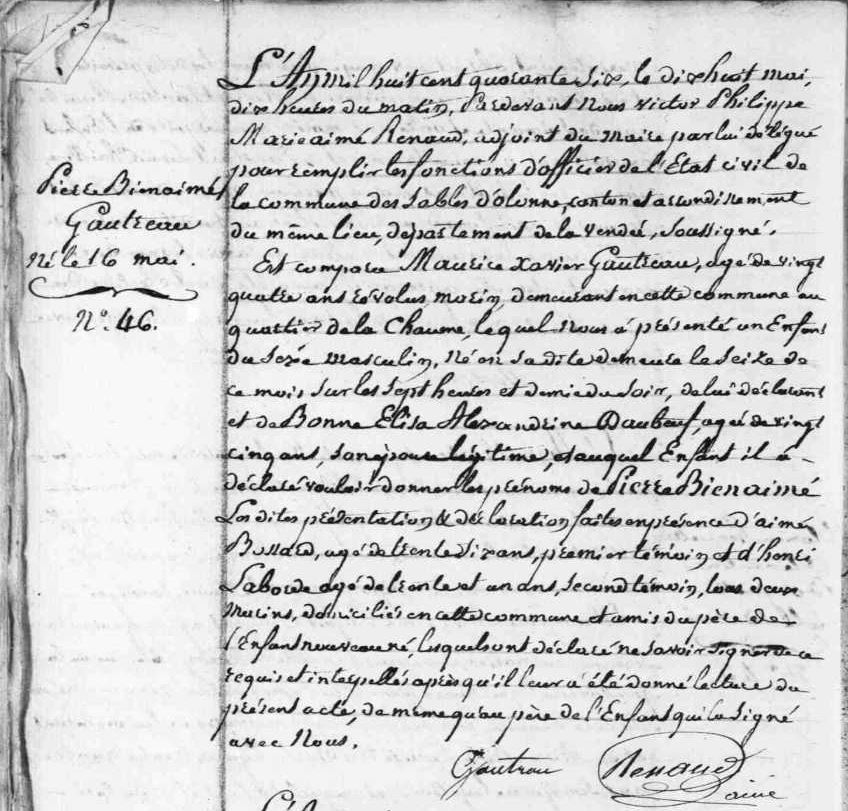 Pierre Bienaimé
Gautreau
Né le 16 mai.
N°. 46.
L'An mil huit cent quarante Six, le dix huit mai,
dix heures du matin, Pardevant Nous Victor Philippe
Marie aimé Renaud, adjoint du Maire par lui délégué
pour remplir les fonctions d'officier de l'Etat civil de
la commune des Sables d'olonne, canton et arrondissement
du même lieu, département de la vendée, Soussigné.
Est comparu Maurice Xavier Gautreau, agé de vingt
quatre ans révolus marin, demeurant en cette commune au
quartier de la Chaume, lequel Nous a présenté un Enfant
du Sexe masculin, Né en Sa dite demeure le Seize de
ce mois Sur les Sept heures et demie du Soir, de lui déclarant
et de Bonne Elisa Alexandrine Daubeuf, agée de vingt
cinq ans, Son épouse légitime, et auquel Enfant il a
déclaré vouloir donner les prénoms de Pierre Bienaimé
Les dites présentation & déclaration faites en présence d'aimé
agé de trente Six ans, premier témoin et d'henri
Laborde agé de trente et un ans, Second témoin, tous deux
Marins, domiciliés en cette commune et amis du père de
l'Enfant nouveau né, lesquels ont déclaré ne Savoir Signer de ce
requis et interpellés après qu'il leur a été donné lecture du
présent acte, de meme qu'au père de l'Enfant qui la Signé
avec Nous.
Gautreau Renaud
aimé